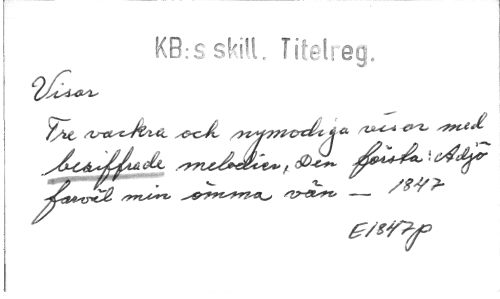 KB:s skill. Titelreg.
Visor
Tre vackra och nymodiga visor med
besiffrade melodier, Den första: Adjö
farväl min ömma vän — 1847
E1847p